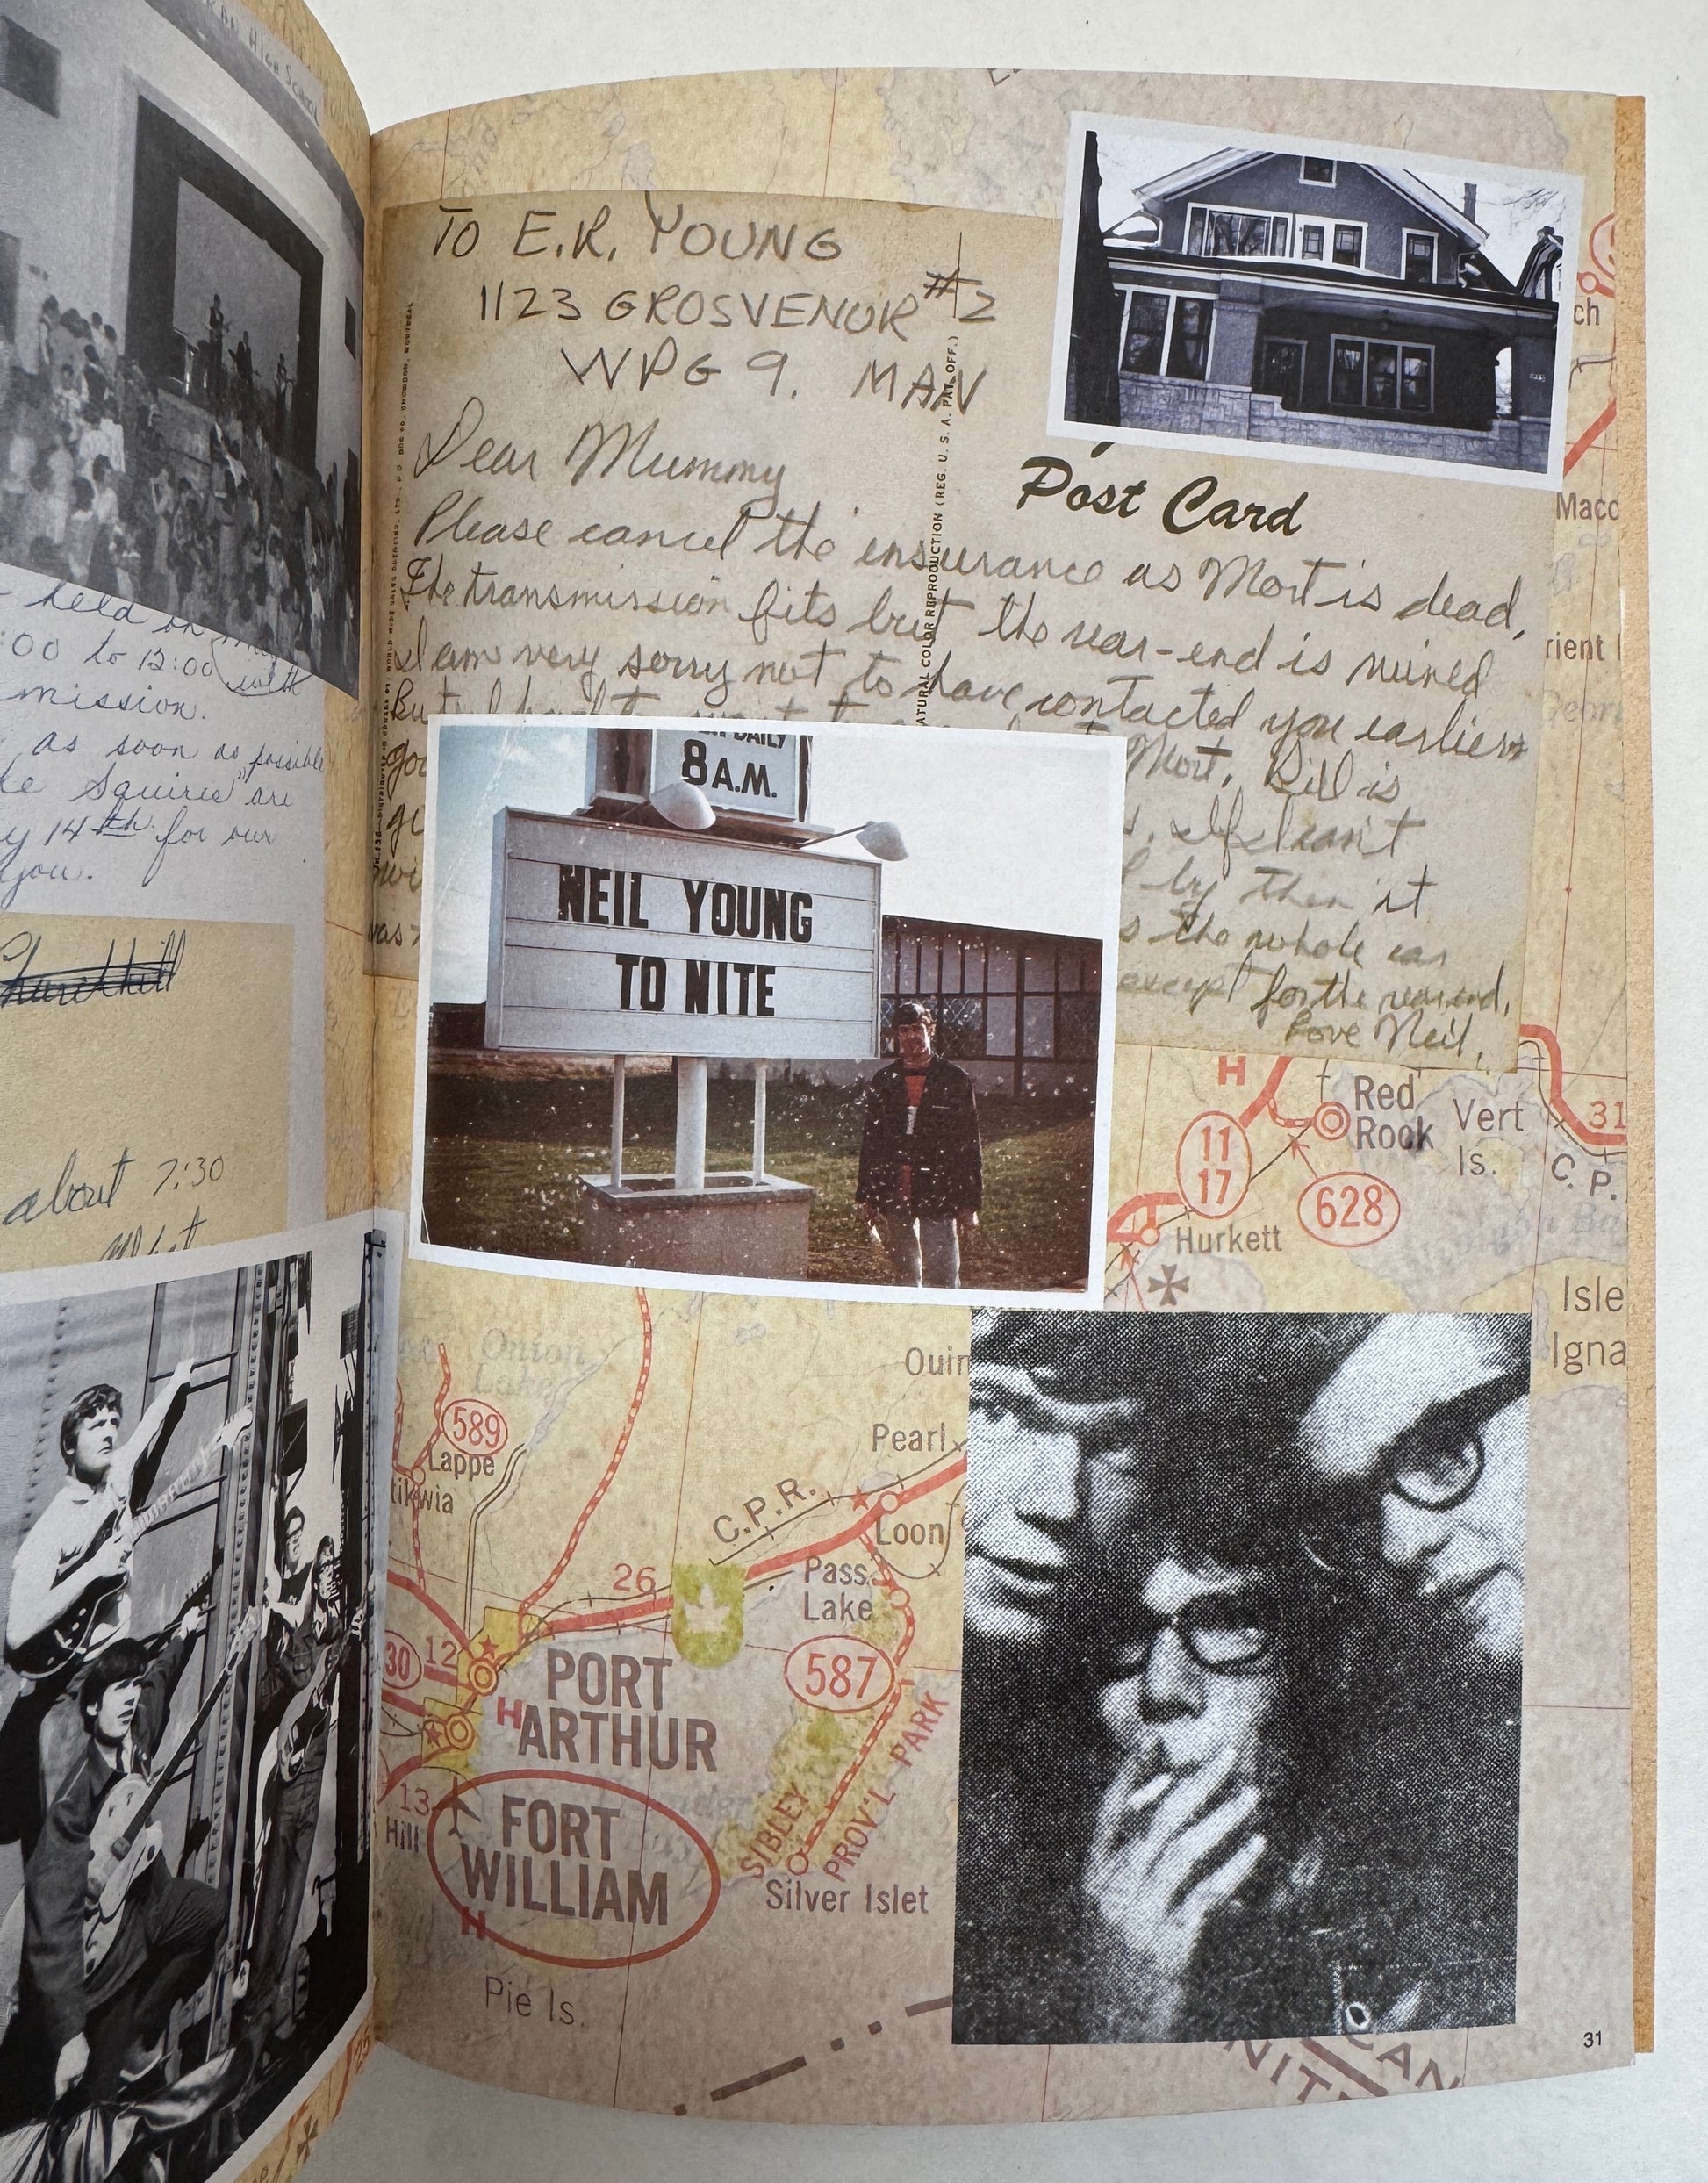 HIGH SCHOOL
held on
:00 to 12:00 with
mission.
as soon as possible
Squires" are
y 14th for our
you.
about 7:30
TO E.R. YOUNG
1123 GROSVENOR #2
WPG 9. MAN
Dear Mummy
Post Card
Please cancel the insurance as Mort is dead,
The transmission fits but the rear-end is ruined
I am very sorry not to have contacted you earlier
But
Mort. Bill is
. If I can't
by then it
s the whole car
except for the rear end,
Love Neil,
NATURAL COLOR REPRODUCTION (REG. U. S. A. PAT. OFF.)
DAILY
8 A.M.
NEIL YOUNG
TO NITE
ch
Macd
rient
H
Red
Rock
Vert
Is.
31
11
17
628
C. P.
Hurkett
Isle
Igna
Onion
Lake
Ouim
589
Lappe
Pearl
C.P.R.
Loon
26
Pass
Lake
30
12
PORT
ARTHUR
H
587
13
Hill
FORT
WILLIAM
H
SIBLEY
PROV'L PARK
Silver Islet
Pie Is.
25
CAN
NIT
31